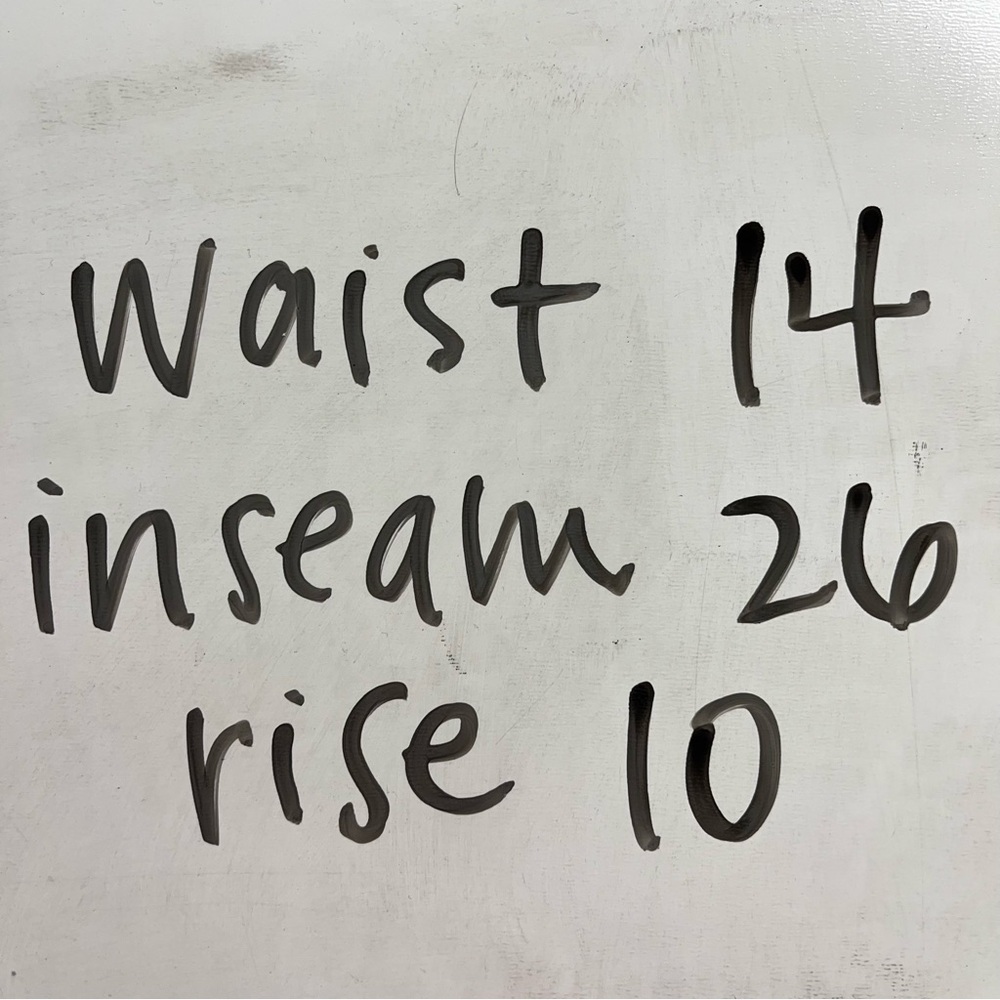 waist 14
inseam 26
rise 10